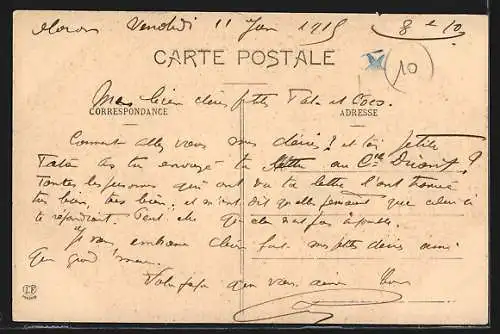 Vendredi 11 Juin 1915 8 e 10
CARTE POSTALE
10
Mes bien chers ptes Tata et Coco.
CORRESPONDANCE ADRESSE
Comment allez vous mes chéries? et toi petite
Tata as tu envoyé ta lettre au Cne Driant?
Toutes les personnes qui ont vu ta lettre l'ont trouvé
très bien, très bien, et m'ont dit qu'elles pensent que celui ci
te répondrait. Peut être que cela n'est pas
Je vous embrasse bien fort mes ptes chéries ainsi
que grand mère.
Votre papa qui vous aime bien